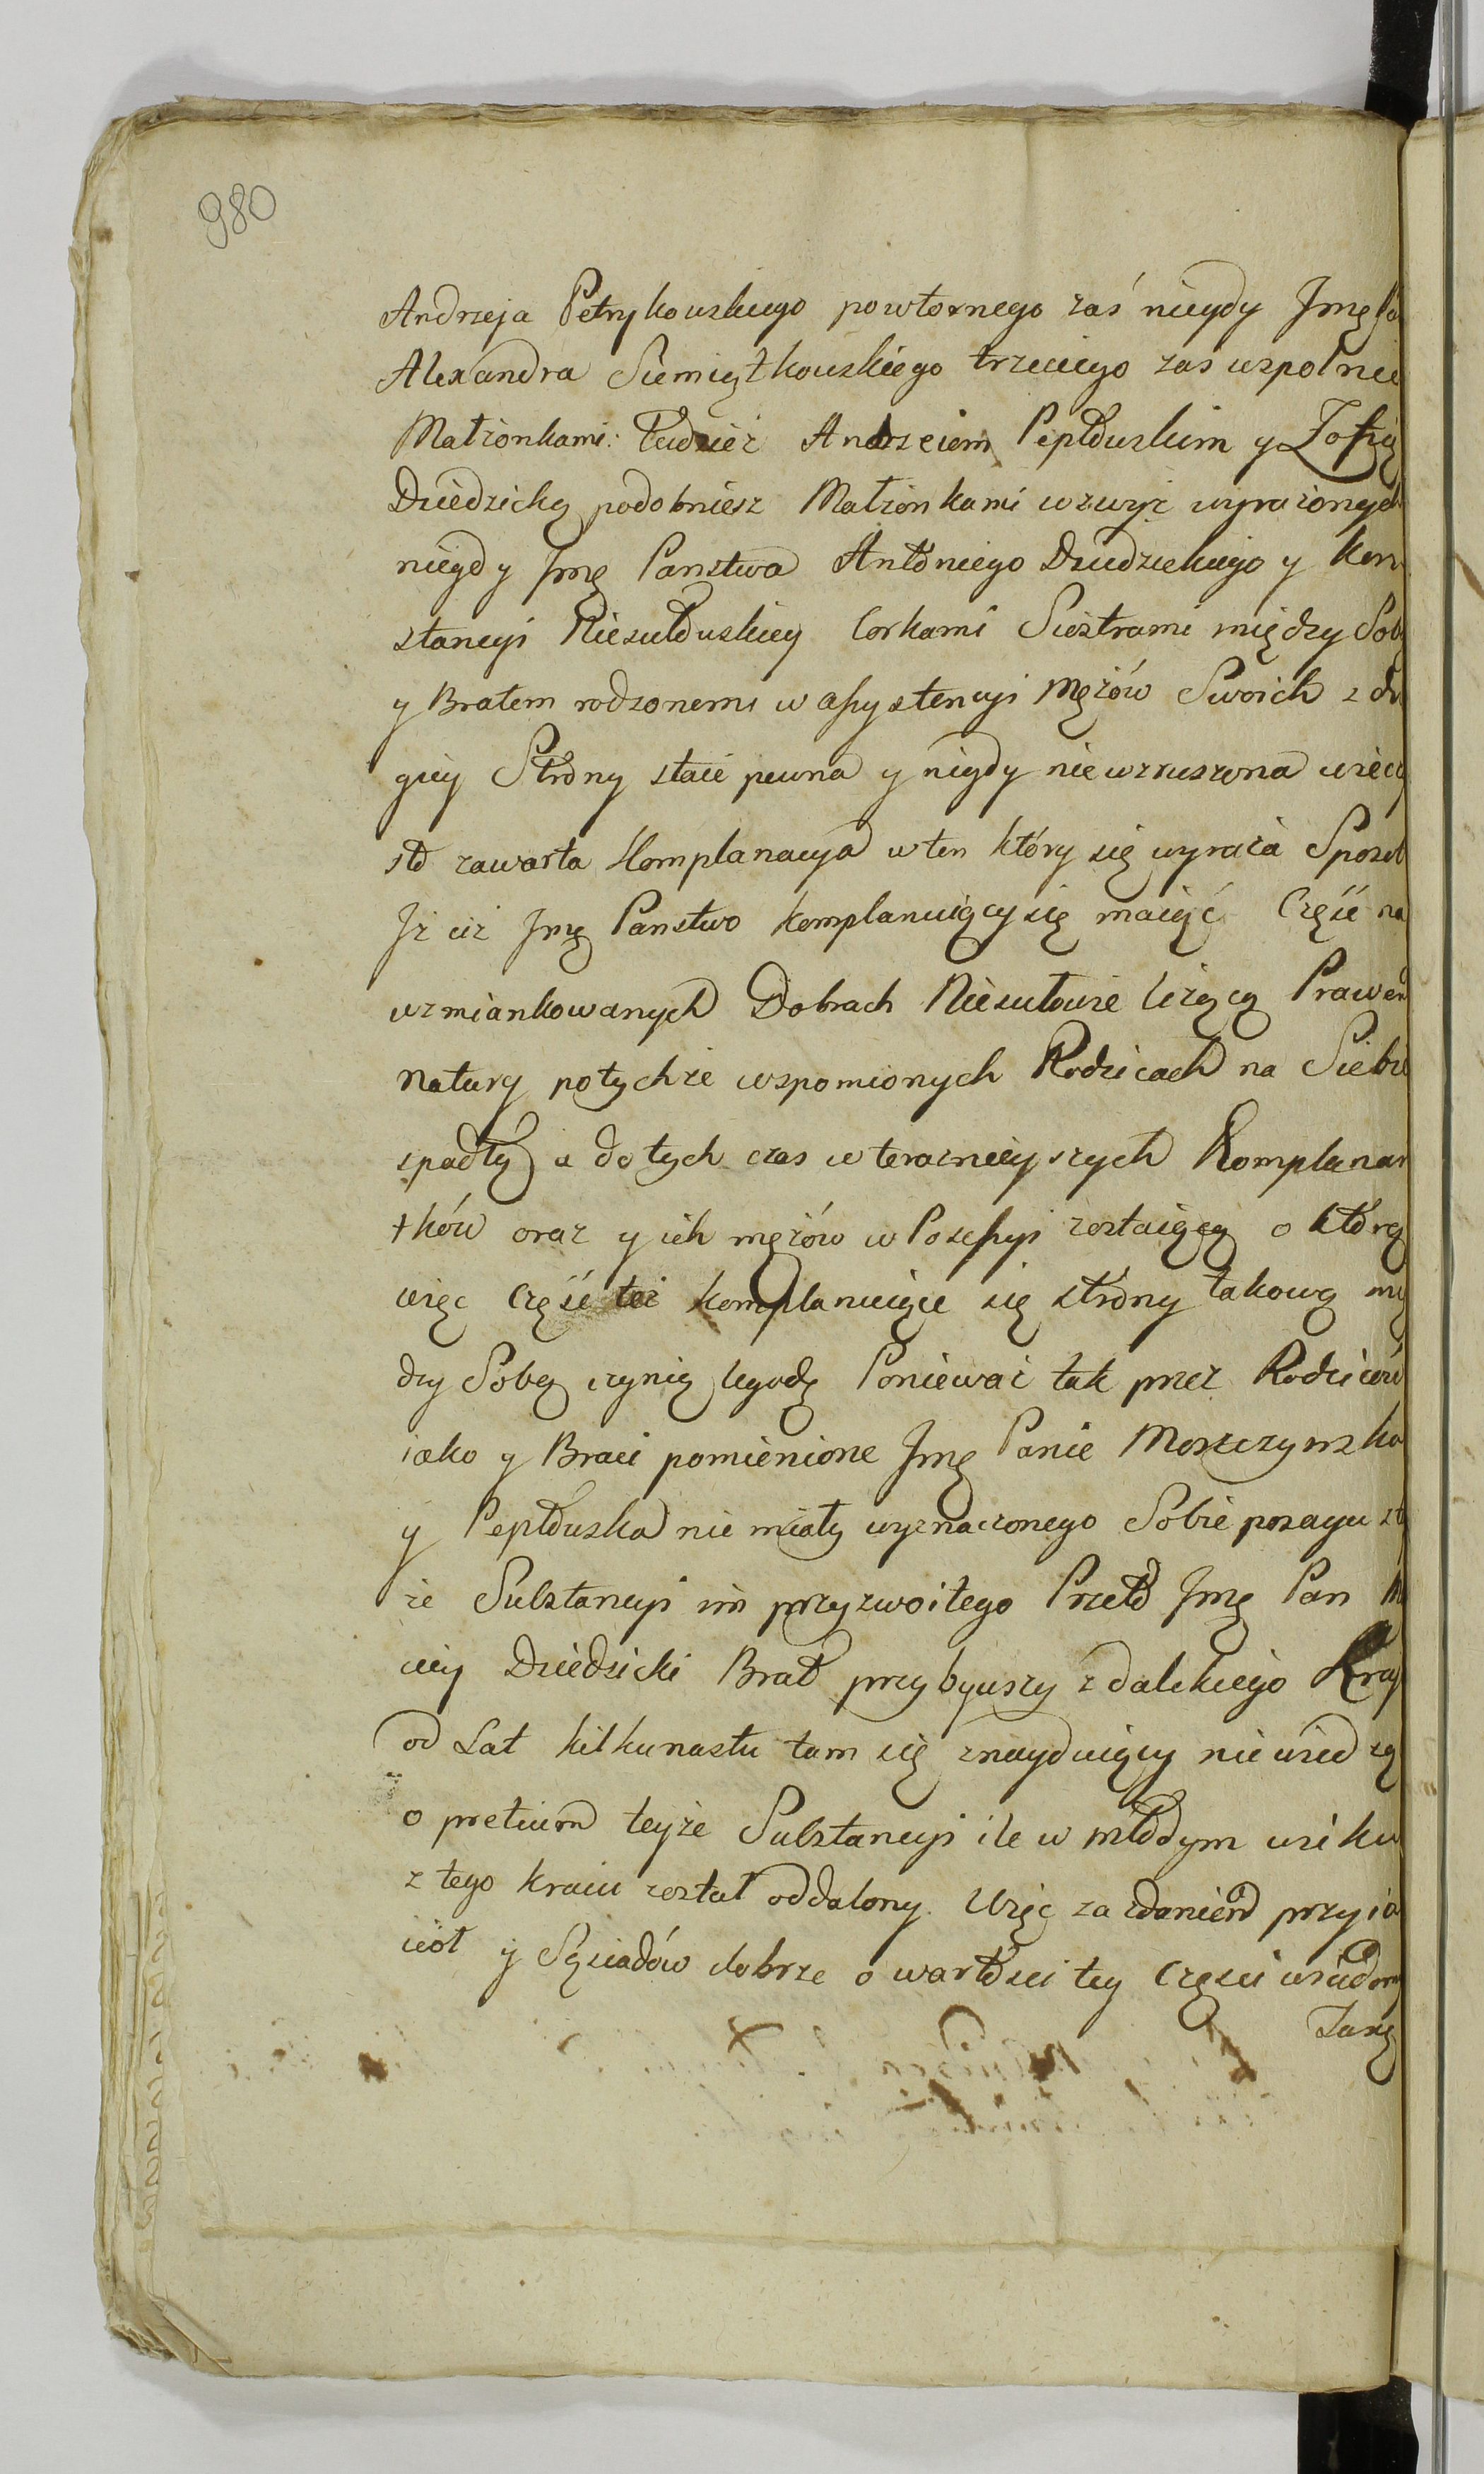 980
Andrzeja Petrykowskiego powtornego zaś niegdy Jmę Pa
Alexandra Siemiątkowskiego trzeciego zas wspolnie
Małżonkami: Tudzież Andrzeiem Pepłowskim y Zofią
Dziedzicką podobniesz Małżonkami wzwyż wyrażonych
niegdy Jmę Państwa Antoniego Dziedzickiego y Kon
stancyi Niesułowskiey Corkami Siostrami między Sobą
y Bratem rodzonemi w assystencyi Mężów Swoich z dru
giey Strony staie pewna y nigdy niewzruszona wieczy
sto zawarta Komplanacya w ten który się wyraża Sposob
Jż ciż Jmę Państwo komplanuiący się maiąć Część na
wzmiankowanych Dobrach Niesułowie leżącą Prawem
Natury po tychże wspomionych Rodzicach na Siebie
spadłą a do tych czas w teraznieyszych Komplanan
tków oraz y ich mężów w Posessyi zostaiącą o którą
więc Część też komplanuiące się strony takową mię
dzy Sobą czynią Ugodę Ponieważ tak przez Rodziców
iako y Braci pomienione Jmę Panie Moszczynska
y Pepłowska nie miały wyznaczonego Sobie posagu z ty
że Substancyi im przyzwoitego Przeto Jmę Pan Ma
ciey Dziedzicki Brat przybywszy z dalekiego Kray
od Lat kilkunastu tam się znayduiący nie wiedzą
o pretium teyże Substancyi ile w młodym wieku
z tego kraiu został oddalony. Więc za zdaniem przyia
cioł y Sąsiadów dobrze o wartości tey Części wiadom
Taxę